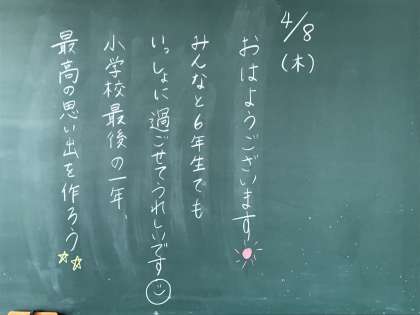 4/8
(木)
おはようございます
みんなと6年生でも
いっしょに過ごせてうれしいです
小学校最後の一年、
最高の思い出を作ろう